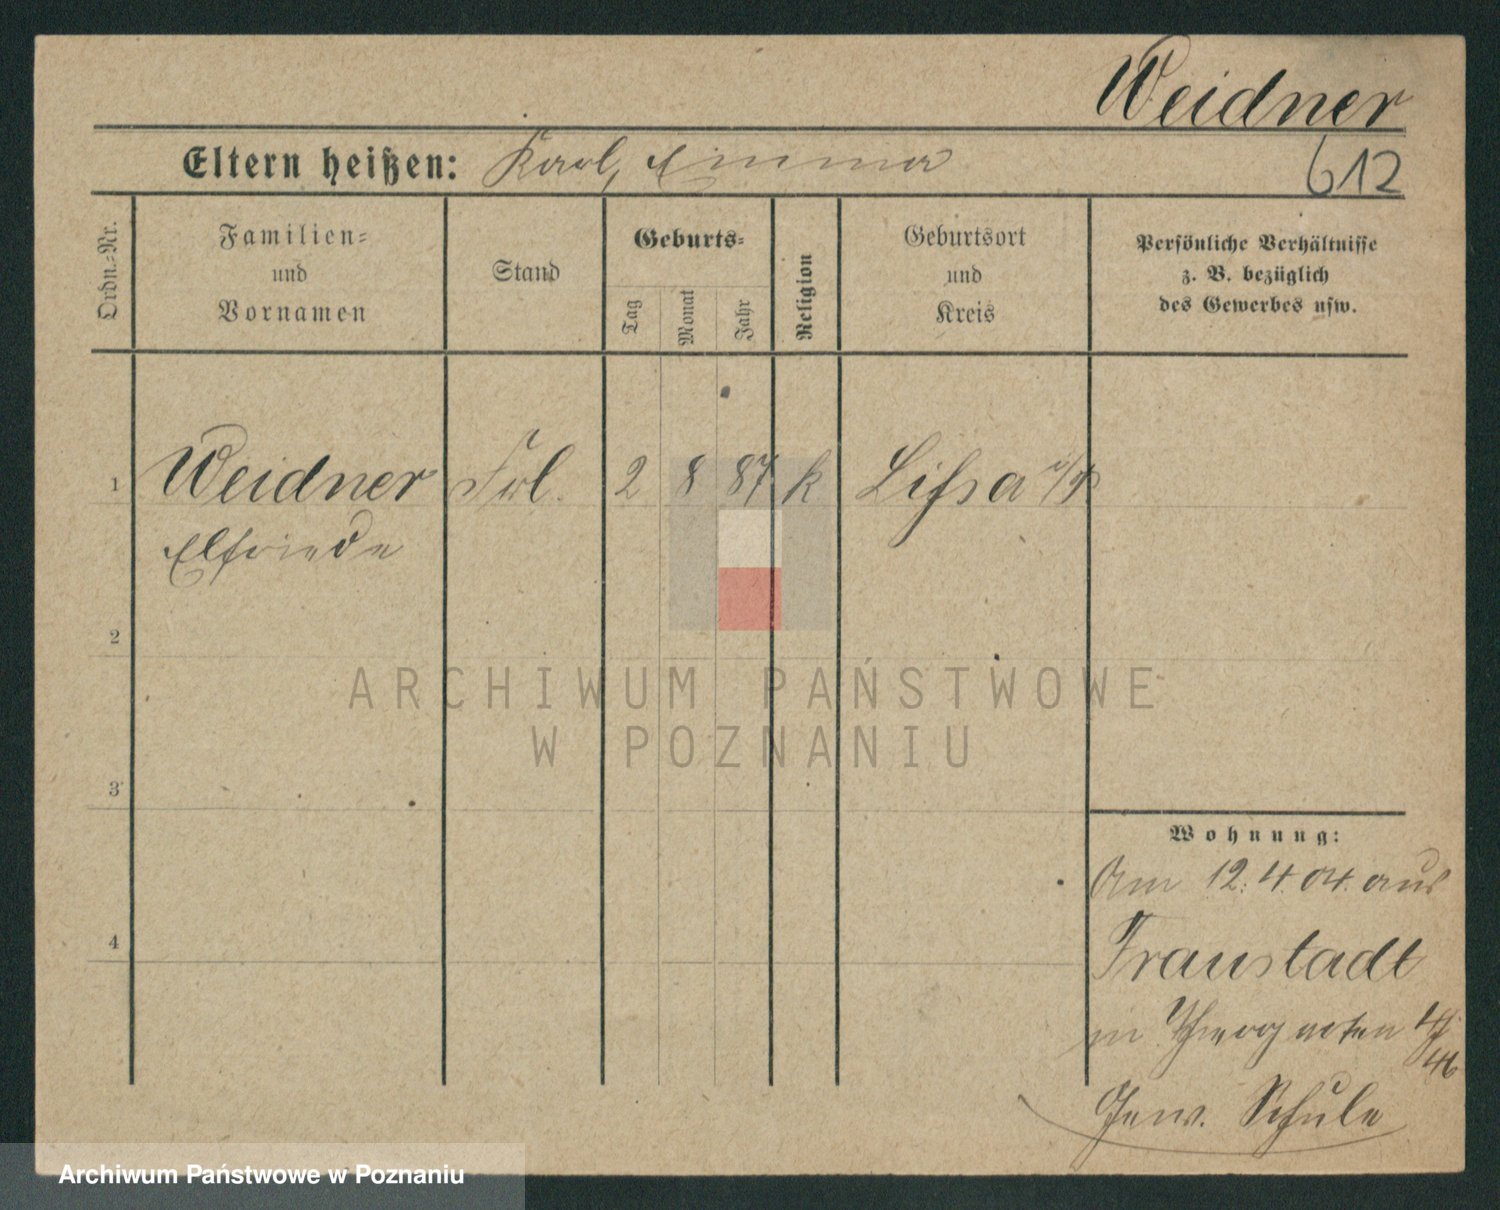 Weidner
Eltern heißen: Karl, Emma
612
Ordn.-Nr.
Familien-
und
Vornamen
Stand
Geburts-
Tag
Monat
Jahr
Religion
Geburtsort
und
Kreis
Persönliche Verhältnisse
z. B. bezüglich
des Gewerbes usw.
1 Weidner Frl. 2 8 87 k Lissa i/P
Elfriede
2
3
4
ARCHIWUM PAŃSTWOWE
W POZNANIU
Wohnung:
Am 12.4.04. aus
Fraustadt
in
Gew. Schule
Archiwum Państwowe w Poznaniu